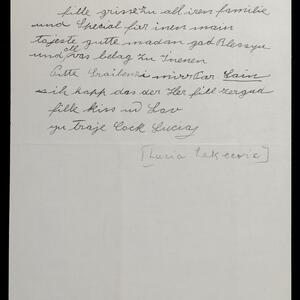 fille grisse zu all iren familie
und Special für inen main
tajeste gutte madam gad blessyu
und all vas belag zu Inenen
Bitte Schraiben mir Par Lain
ich happ das der Her fill zergud
fille kiss und Lov
yu traje Cock Lucia
[Lucia Lekcevic]